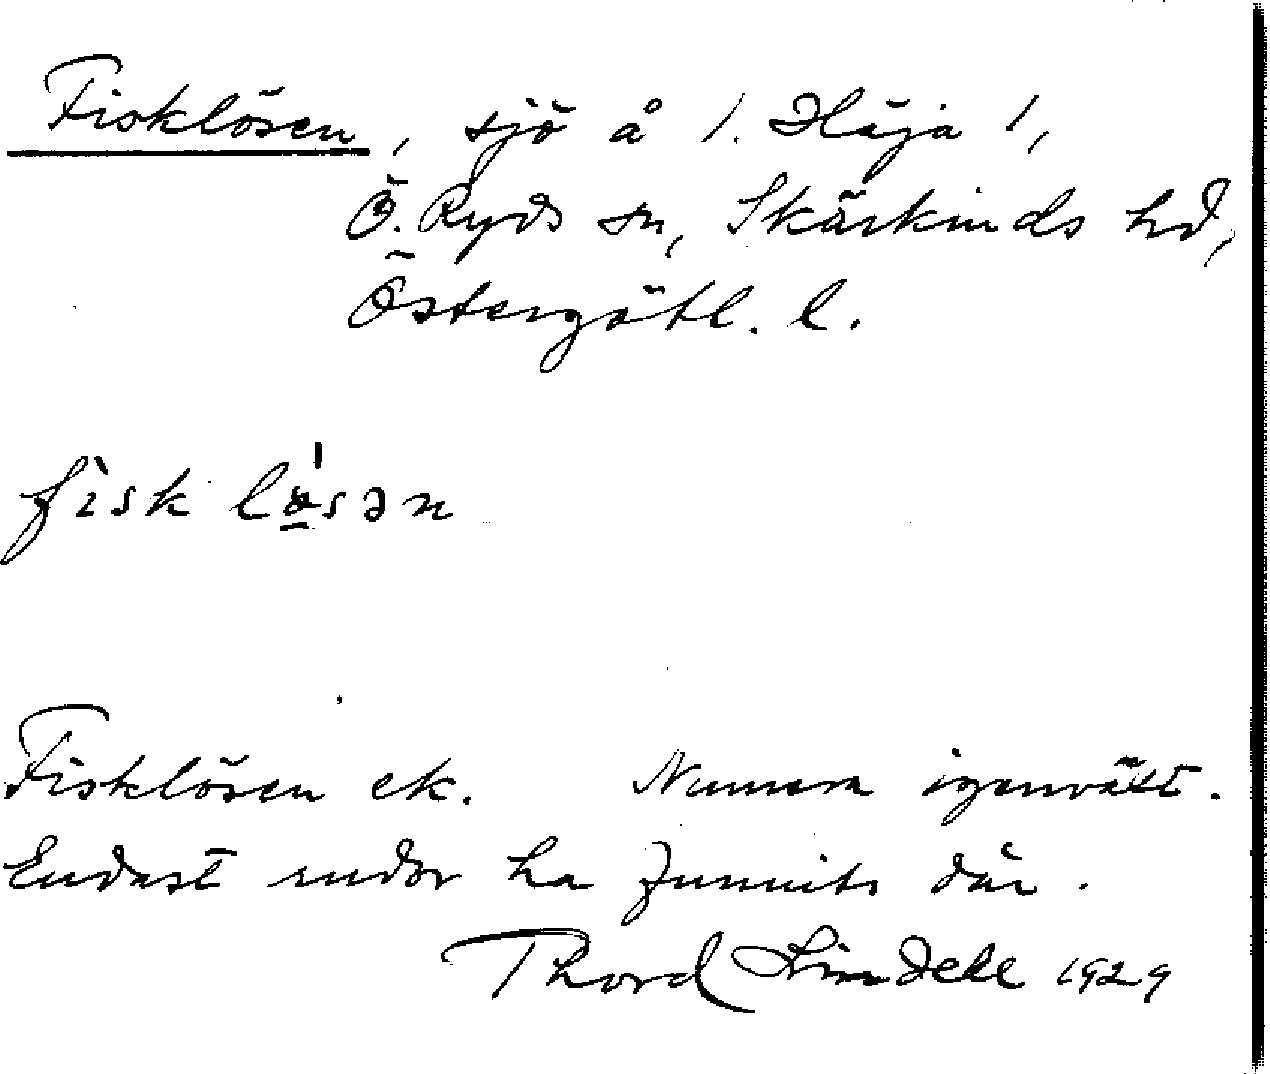 Fisklösen, sjö å 1. Häja 1,
Ö. Ryds sn, Skärkinds hd,
Östergötl. l.
fìsk lö̲́sən
Fisklösen ek. Numera igenvätt.
Endast rudor ha funnits där.
Thord Lindell 1929